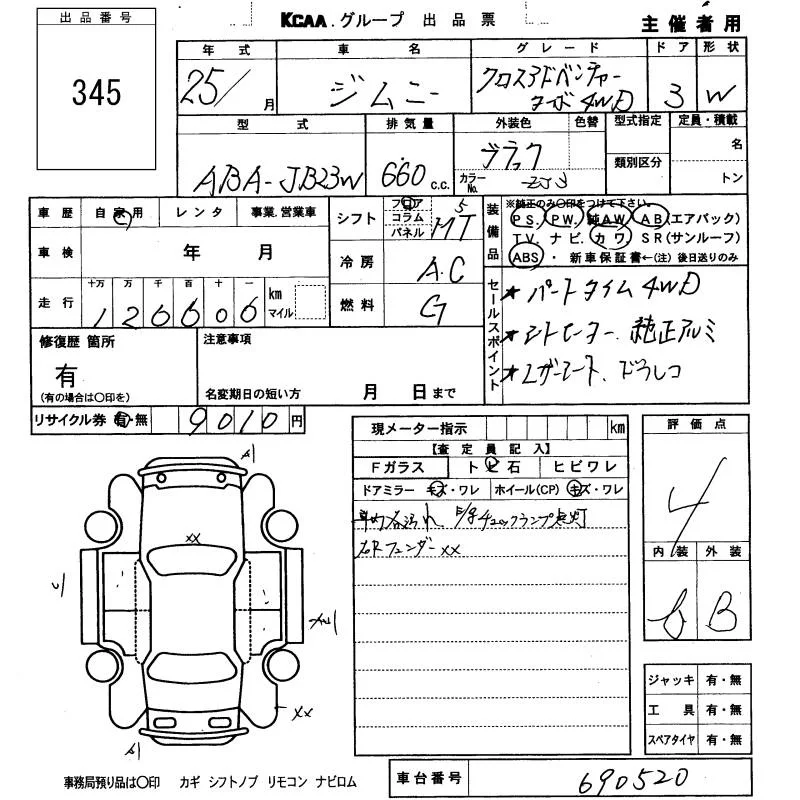 出品番号
345
KCAA.グループ 出品票
主催者用
年式 車名 グレード ドア 形状
25/ 月 ジムニー クロスアドベンチャー ターボ4WD 3 W
型式 排気量 外装色 色替 型式指定 定員・積載
ABA-JB23W 660 c.c. ブラック
カラーNo. ZJ3
類別区分
名
トン
車歴 自家用 レンタ 事業.営業車
車検 年 月
走行 十万 万 千 百 十 一
126606 km マイル
シフト フロア コラム パネル 5 MT
冷房 A.C
燃料 G
装備品
※純正のみ○印をつけて下さい。
PS. PW. 純AW. AB(エアバック)
TV. ナビ. カワ. SR(サンルーフ)
ABS・ 新車保証書←(注) 後日送りのみ
セールスポイント
★パートタイム4WD
★シートヒーター. 純正アルミ
★レザーシート. ドラレコ
修復歴 箇所
有
(有の場合は○印を)
注意事項
名変期日の短い方 月 日まで
リサイクル券 有・無 9010円
現メーター指示 km
【査定員記入】
Fガラス トビ石 ヒビワレ
ドアミラー キズ・ワレ ホイール(CP) キズ・ワレ
チェックランプ点灯
右Rフェンダーxx
評価点
4
内装 外装
B
ジャッキ 有・無
工具 有・無
スペアタイヤ 有・無
xx
xx
事務局預り品は○印 カギ シフトノブ リモコン ナビロム
車台番号 690520